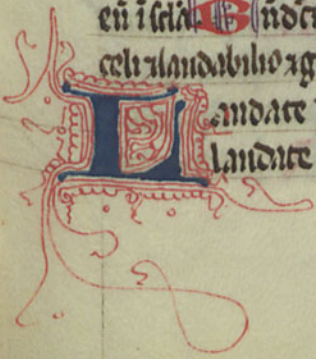 eū i sclā Bn̄dict
celi ⁊ laudabilis ⁊ g
Laudate
laudate